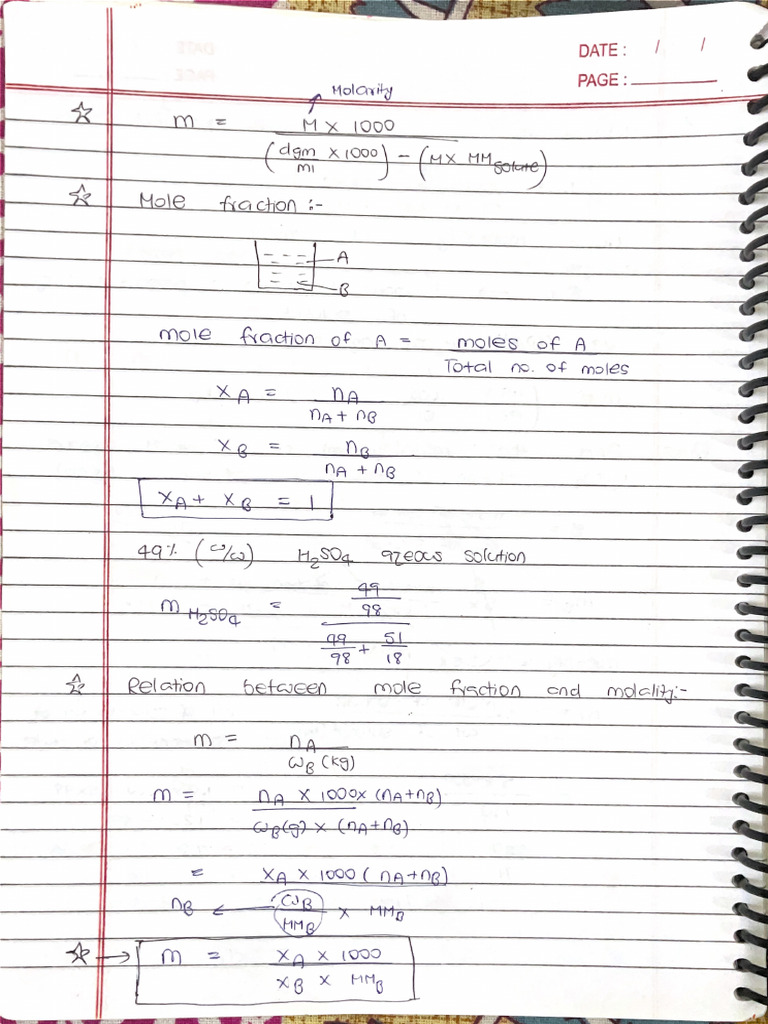 DATE : / /
PAGE :
Molarity
☆ m = M × 1000 / ((dgm/ml × 1000) - (M × MMsolute))
☆ Mole fraction :-
A
B
mole fraction of A = moles of A / Total no. of moles
xA = nA / (nA + nB)
xB = nB / (nA + nB)
xA + xB = 1
49% (ω/ω) H2SO4 qzeocs solution
mH2SO4 = (49/98) / (49/98 + 51/18)
☆ Relation between mole fraction and molality:-
m = nA / ωB (kg)
m = nA × 1000 × (nA+nB) / ωB(g) × (nA+nB)
= xA × 1000 (nA+nB)
nB ← (ωB/MMB) × MMB
☆ → m = xA × 1000 / xB × MMB